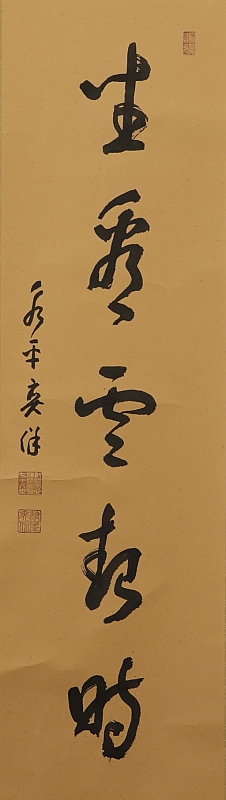 坐看雲起時
永平奕保